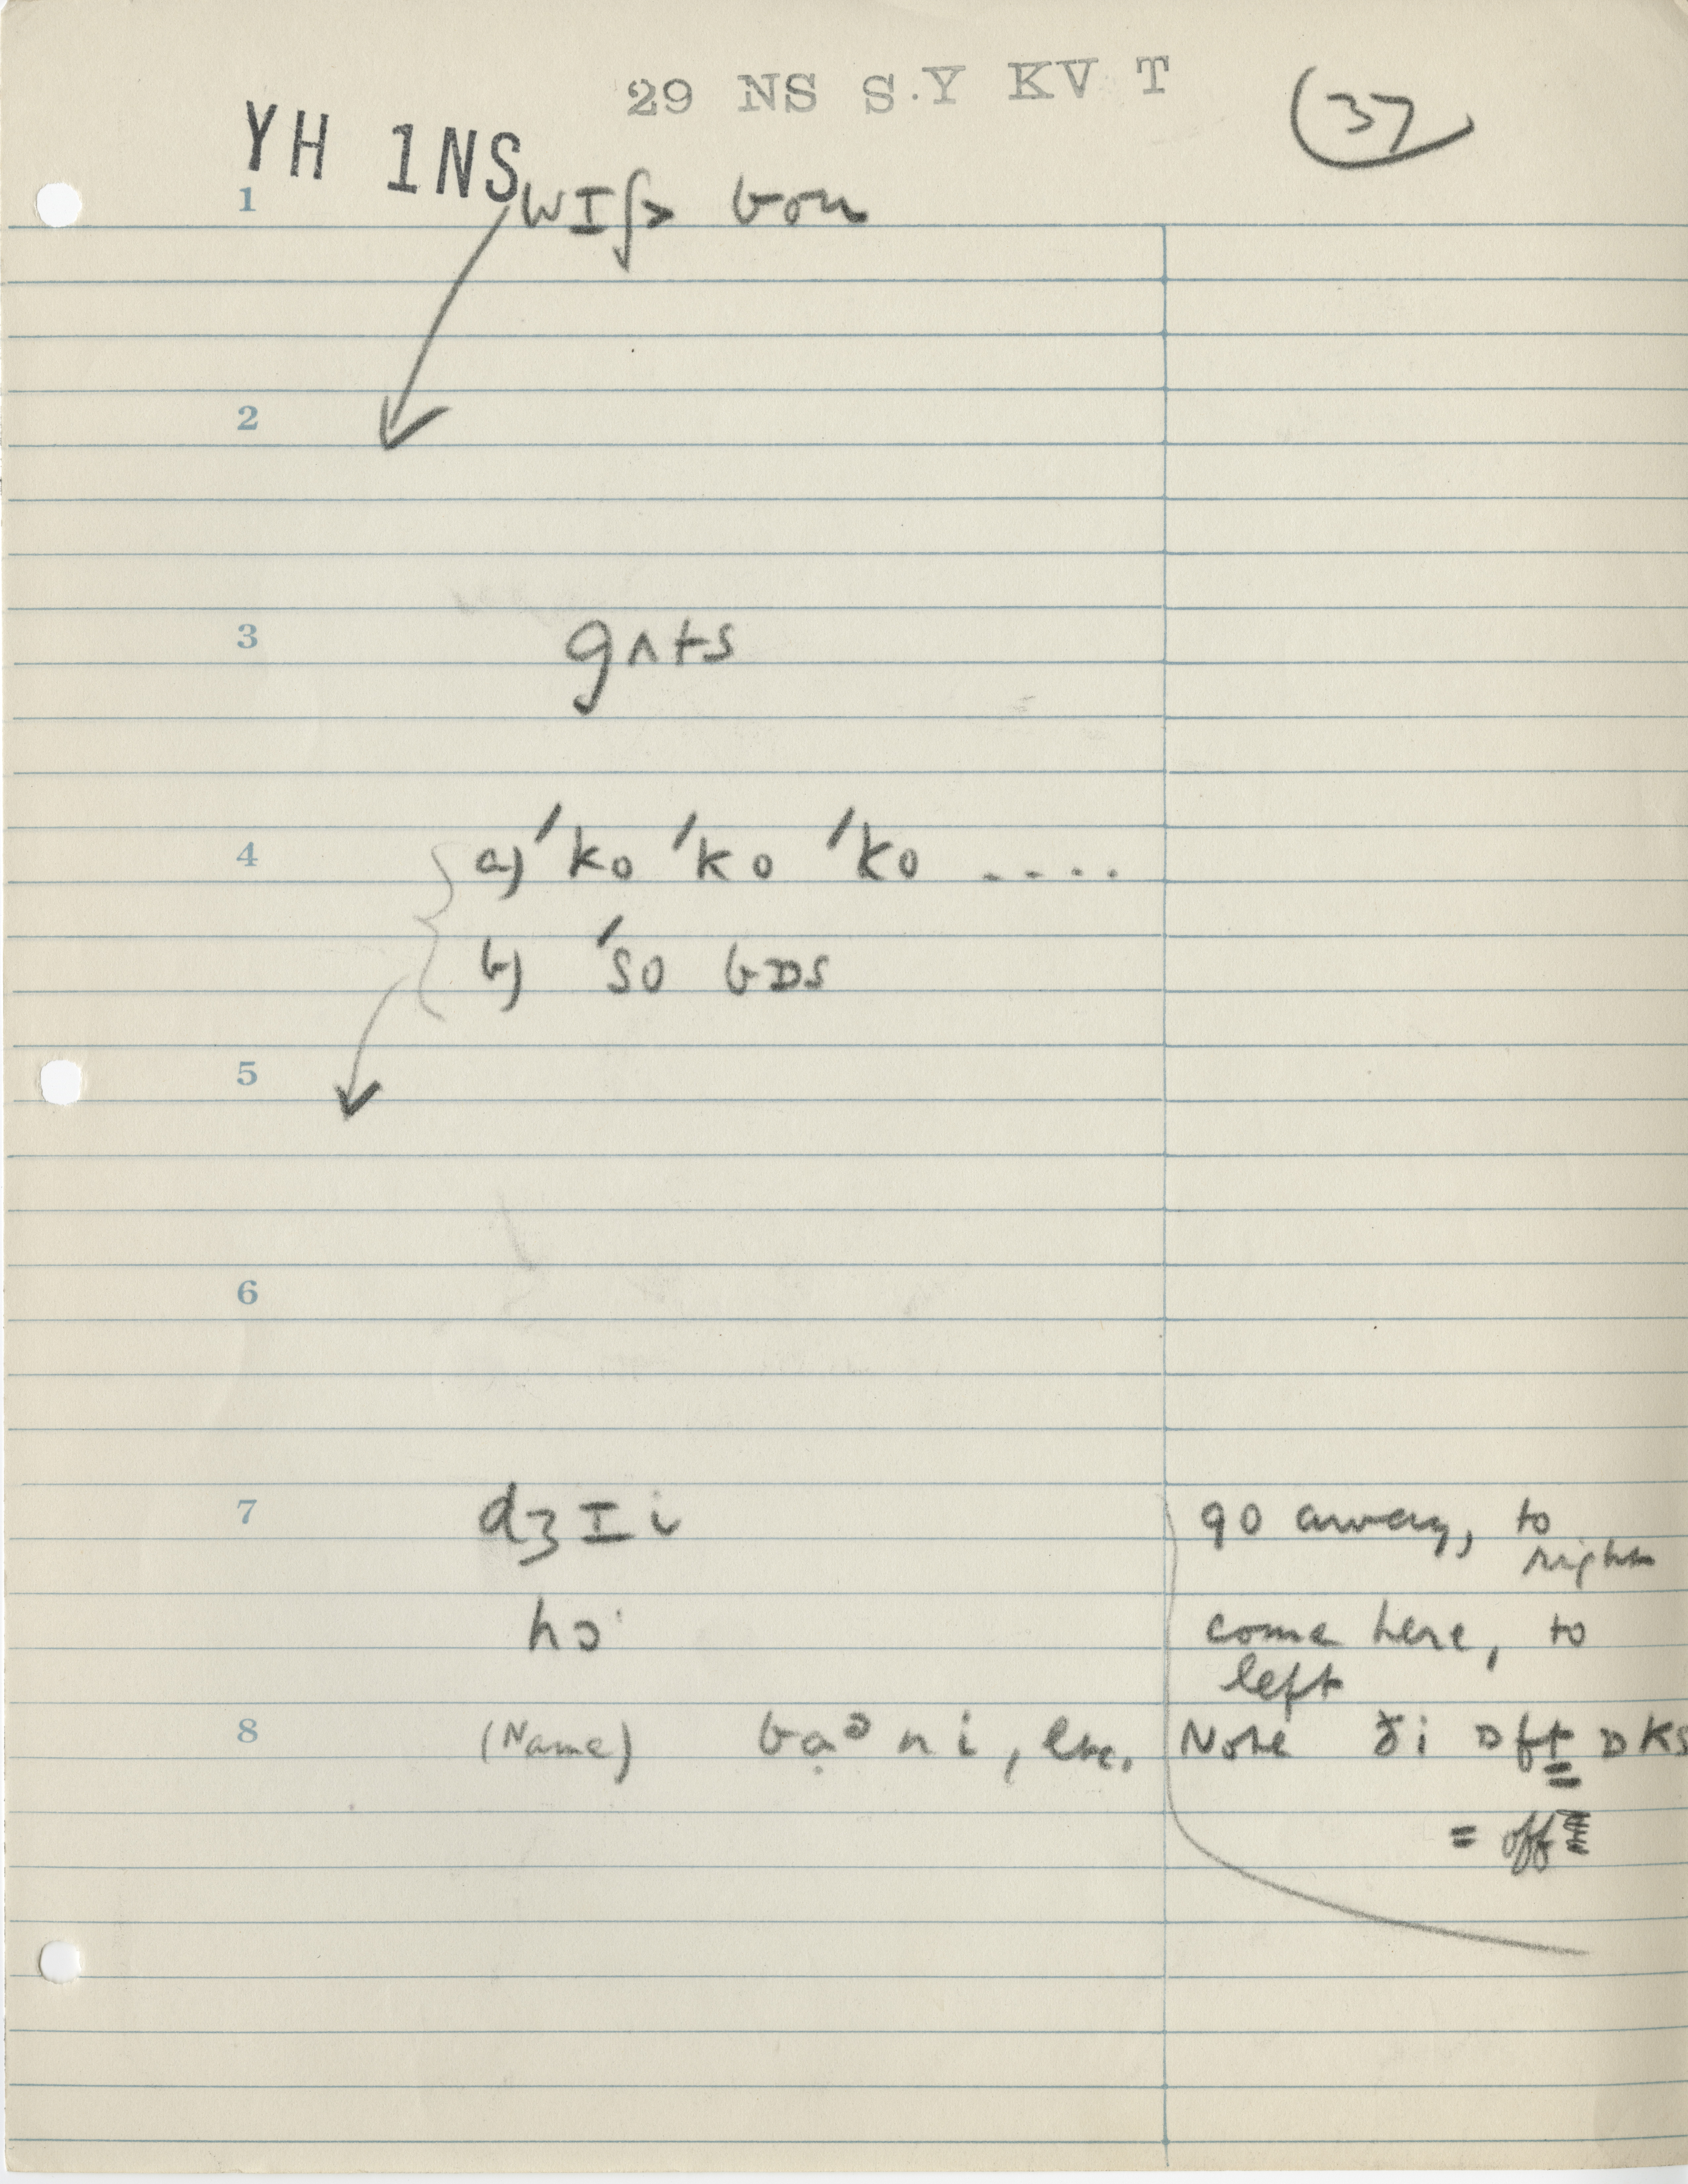 29 NS S.Y KV T
(37)
YH 1NS
1 wɪʃ> boʊn
2
3 gʌts
4 a) 'ko 'ko 'ko ....
b) 'so bɒs
5
6
7 dʒɪi go away, to right
hɔ' come here, to left
8 (Name) bạᵊni, etc. Note ði ɒft ɒks
= off